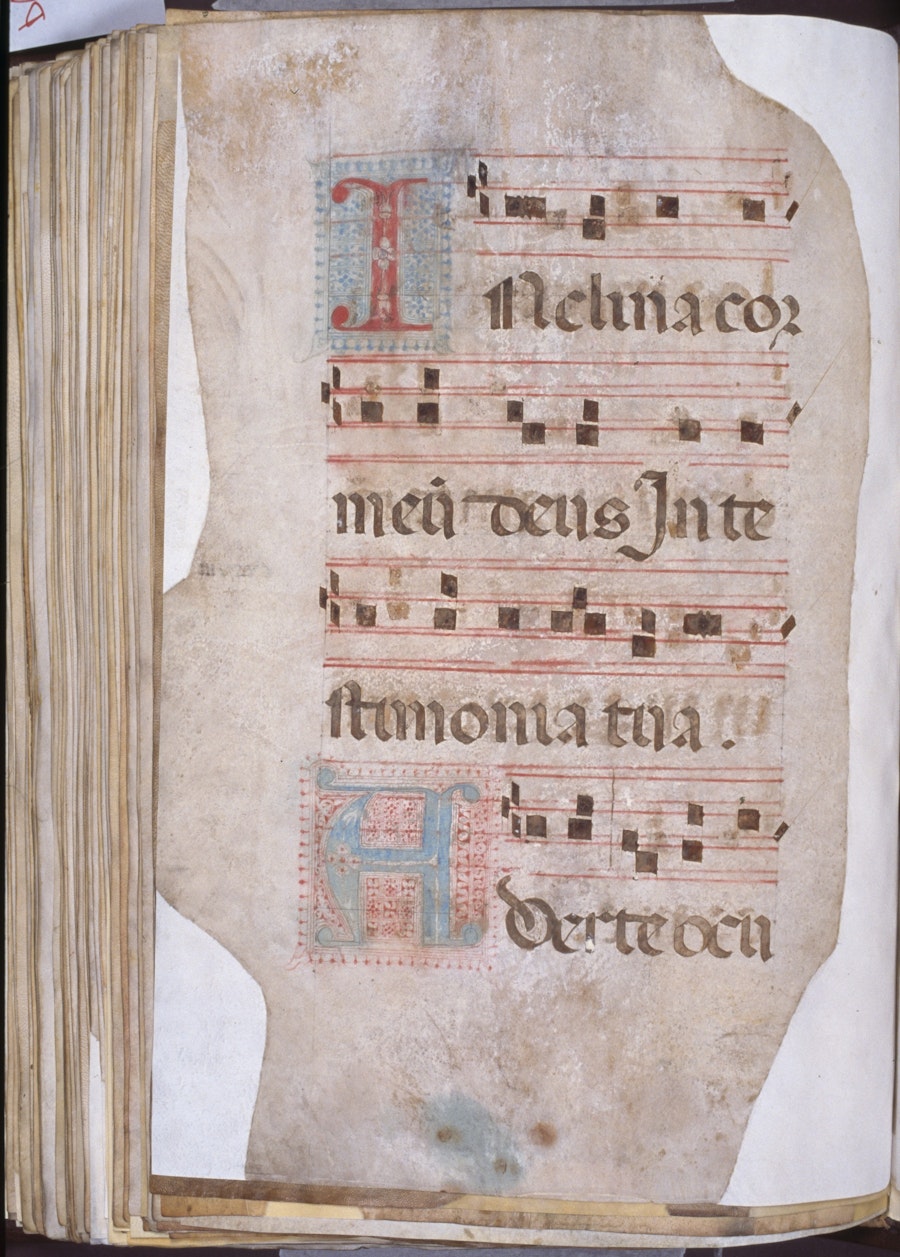 INclina cor
meū deus In te
stimonia tua .
AVerte ocu